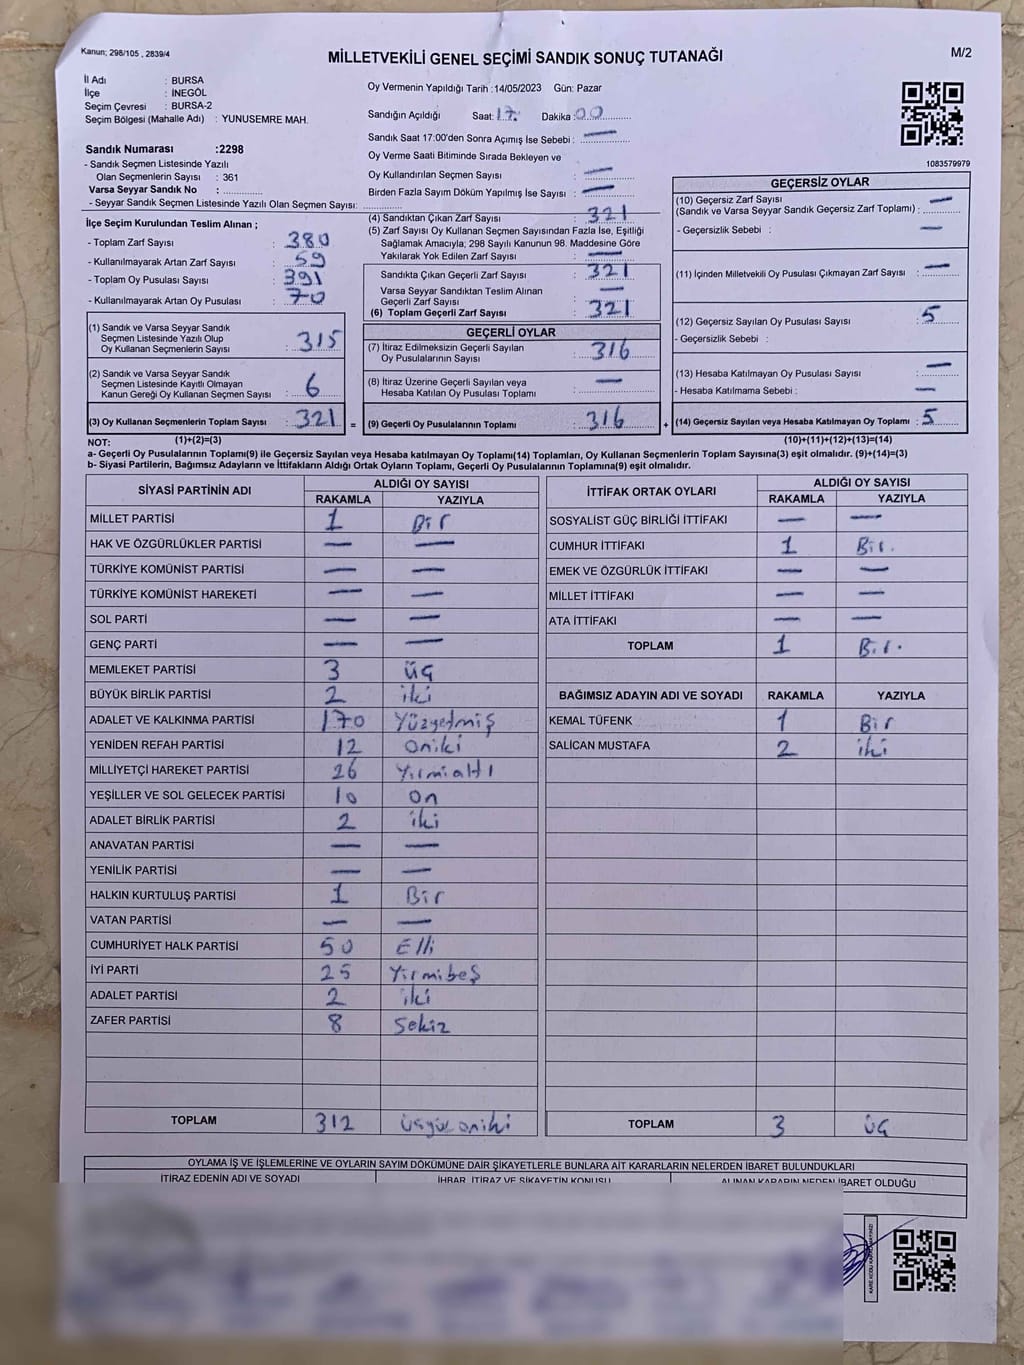 Kanun; 298/105 , 2839/4
MİLLETVEKİLİ GENEL SEÇİMİ SANDIK SONUÇ TUTANAĞI
M/2
İl Adı : BURSA
İlçe : İNEGÖL
Seçim Çevresi : BURSA-2
Seçim Bölgesi (Mahalle Adı) : YUNUSEMRE MAH.
Sandık Numarası :2298
- Sandık Seçmen Listesinde Yazılı
Olan Seçmenlerin Sayısı : 361
Varsa Seyyar Sandık No : ..............
- Seyyar Sandık Seçmen Listesinde Yazılı Olan Seçmen Sayısı: ..............
Oy Vermenin Yapıldığı Tarih :14/05/2023 Gün: Pazar
Sandığın Açıldığı Saat: 17. Dakika: 00
Sandık Saat 17:00'den Sonra Açımış İse Sebebi : —
Oy Verme Saati Bitiminde Sırada Bekleyen ve
Oy Kullandırılan Seçmen Sayısı : —
Birden Fazla Sayım Döküm Yapılmış İse Sayısı : —
1083579979
İlçe Seçim Kurulundan Teslim Alınan ;
- Toplam Zarf Sayısı : 380
- Kullanılmayarak Artan Zarf Sayısı : 59
- Toplam Oy Pusulası Sayısı : 391
- Kullanılmayarak Artan Oy Pusulası : 70
(1) Sandık ve Varsa Seyyar Sandık
Seçmen Listesinde Yazılı Olup
Oy Kullanan Seçmenlerin Sayısı : 315
(2) Sandık ve Varsa Seyyar Sandık
Seçmen Listesinde Kayıtlı Olmayan
Kanun Gereği Oy Kullanan Seçmen Sayısı : 6
(3) Oy Kullanan Seçmenlerin Toplam Sayısı : 321 =
(4) Sandıktan Çıkan Zarf Sayısı : 321
(5) Zarf Sayısı Oy Kullanan Seçmen Sayısından Fazla İse, Eşitliği
Sağlamak Amacıyla; 298 Sayılı Kanunun 98. Maddesine Göre
Yakılarak Yok Edilen Zarf Sayısı : —
Sandıkta Çıkan Geçerli Zarf Sayısı : 321
Varsa Seyyar Sandıktan Teslim Alınan
Geçerli Zarf Sayısı : —
(6) Toplam Geçerli Zarf Sayısı : 321
GEÇERLİ OYLAR
(7) İtiraz Edilmeksizin Geçerli Sayılan
Oy Pusulalarının Sayısı : 316
(8) İtiraz Üzerine Geçerli Sayılan veya
Hesaba Katılan Oy Pusulası Toplamı : —
(9) Geçerli Oy Pusulalarının Toplamı : 316 +
GEÇERSİZ OYLAR
(10) Geçersiz Zarf Sayısı
(Sandık ve Varsa Seyyar Sandık Geçersiz Zarf Toplamı) : —
- Geçersizlik Sebebi : —
(11) İçinden Milletvekili Oy Pusulası Çıkmayan Zarf Sayısı : —
(12) Geçersiz Sayılan Oy Pusulası Sayısı : 5
- Geçersizlik Sebebi :
(13) Hesaba Katılmayan Oy Pusulası Sayısı : —
- Hesaba Katılmama Sebebi : —
(14) Geçersiz Sayılan veya Hesaba Katılmayan Oy Toplamı : 5
NOT: (1)+(2)=(3) (10)+(11)+(12)+(13)=(14)
a- Geçerli Oy Pusulalarının Toplamı(9) ile Geçersiz Sayılan veya Hesaba katılmayan Oy Toplamı(14) Toplamları, Oy Kullanan Seçmenlerin Toplam Sayısına(3) eşit olmalıdır. (9)+(14)=(3)
b- Siyasi Partilerin, Bağımsız Adayların ve İttifakların Aldığı Ortak Oyların Toplamı, Geçerli Oy Pusulalarının Toplamına(9) eşit olmalıdır.
SİYASİ PARTİNİN ADI ALDIĞI OY SAYISI
RAKAMLA YAZIYLA
MİLLET PARTİSİ 1 Bir
HAK VE ÖZGÜRLÜKLER PARTİSİ — —
TÜRKİYE KOMÜNİST PARTİSİ — —
TÜRKİYE KOMÜNİST HAREKETİ — —
SOL PARTİ — —
GENÇ PARTİ — —
MEMLEKET PARTİSİ 3 üç
BÜYÜK BİRLİK PARTİSİ 2 iki
ADALET VE KALKINMA PARTİSİ 170 Yüzyetmiş
YENİDEN REFAH PARTİSİ 12 oniki
MİLLİYETÇİ HAREKET PARTİSİ 26 Yirmialtı
YEŞİLLER VE SOL GELECEK PARTİSİ 10 on
ADALET BİRLİK PARTİSİ 2 iki
ANAVATAN PARTİSİ — —
YENİLİK PARTİSİ — —
HALKIN KURTULUŞ PARTİSİ 1 Bir
VATAN PARTİSİ — —
CUMHURİYET HALK PARTİSİ 50 Elli
İYİ PARTİ 25 Yirmibeş
ADALET PARTİSİ 2 iki
ZAFER PARTİSİ 8 Sekiz
TOPLAM 312 üçyüzoniki
İTTİFAK ORTAK OYLARI ALDIĞI OY SAYISI
RAKAMLA YAZIYLA
SOSYALİST GÜÇ BİRLİĞİ İTTİFAKI — —
CUMHUR İTTİFAKI 1 Bir.
EMEK VE ÖZGÜRLÜK İTTİFAKI — —
MİLLET İTTİFAKI — —
ATA İTTİFAKI — —
TOPLAM 1 Bir.
BAĞIMSIZ ADAYIN ADI VE SOYADI RAKAMLA YAZIYLA
KEMAL TÜFENK 1 Bir
SALİCAN MUSTAFA 2 iki
TOPLAM 3 üç
OYLAMA İŞ VE İŞLEMLERİNE VE OYLARIN SAYIM DÖKÜMÜNE DAİR ŞİKAYETLERLE BUNLARA AİT KARARLARIN NELERDEN İBARET BULUNDUKLARI
İTİRAZ EDENİN ADI VE SOYADI İHBAR, İTİRAZ VE ŞİKAYETİN KONUSU ALINAN KARARIN NEDEN İBARET OLDUĞU